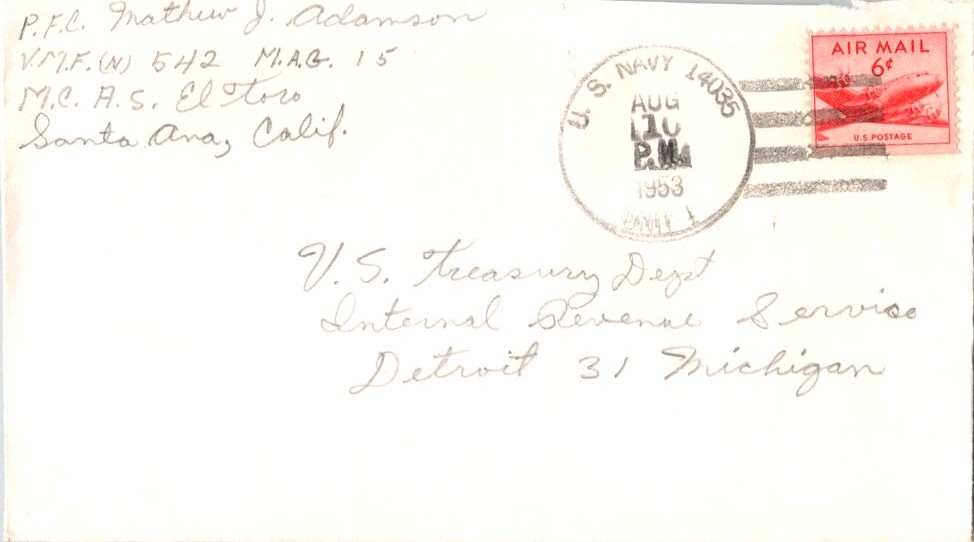 P.F.C. Mathew J. Adamson
V.M.F.(N) 542 M.A.G. 15
M.C. A.S. El Toro
Santa Ana, Calif.
U. S. NAVY 14035
AUG
10
P.M.
1953
UNIT 1
AIR MAIL
6¢
U.S. POSTAGE
U. S. Treasury Dept
Internal Revenue Service
Detroit 31 Michigan